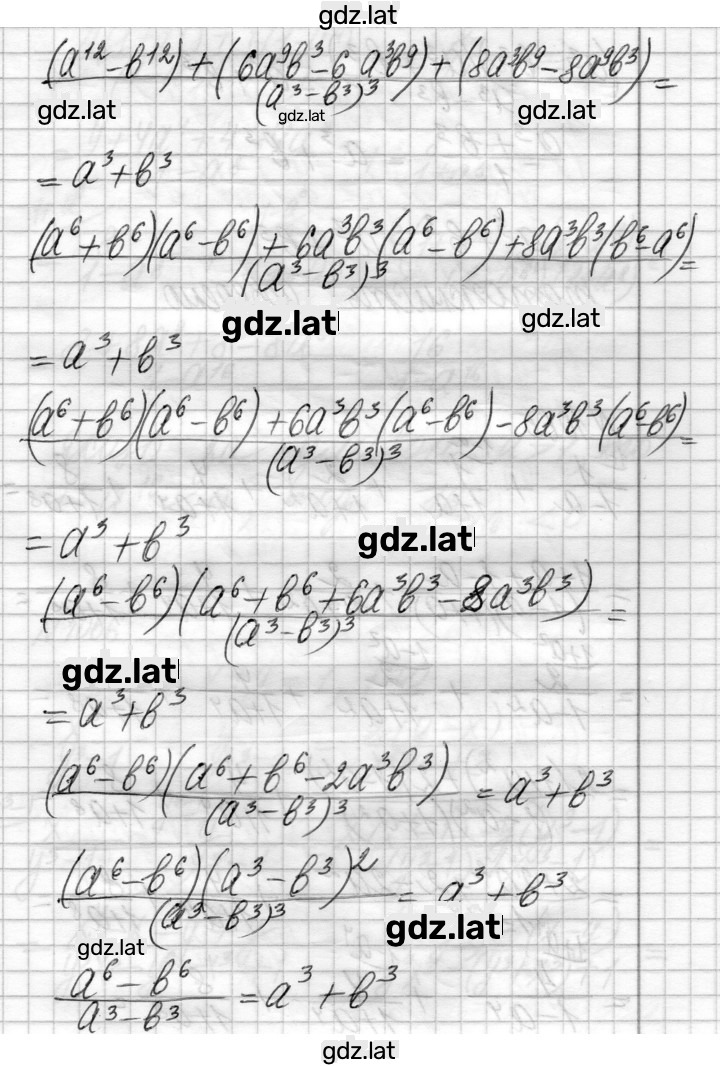 gdz.lat
(a¹² − b¹²) + (6a⁹b³ − 6a³b⁹) + (8a³b⁹ − 8a⁹b³) =
(a³ − b³)³
gdz.lat gdz.lat gdz.lat
= a³ + b³
(a⁶ + b⁶)(a⁶ − b⁶) + 6a³b³(a⁶ − b⁶) + 8a³b³(b⁶ − a⁶) =
(a³ − b³)³
gdz.lat gdz.lat
= a³ + b³
(a⁶ + b⁶)(a⁶ − b⁶) + 6a³b³(a⁶ − b⁶) − 8a³b³(a⁶ − b⁶) =
(a³ − b³)³
= a³ + b³
gdz.lat
(a⁶ − b⁶)(a⁶ + b⁶ + 6a³b³ − 8a³b³) =
(a³ − b³)³
gdz.lat
= a³ + b³
(a⁶ − b⁶)(a⁶ + b⁶ − 2a³b³) = a³ + b³
(a³ − b³)³
(a⁶ − b⁶)(a³ − b³)² = a³ + b³
(a³ − b³)³
gdz.lat
gdz.lat
a⁶ − b⁶ = a³ + b³
a³ − b³
gdz.lat